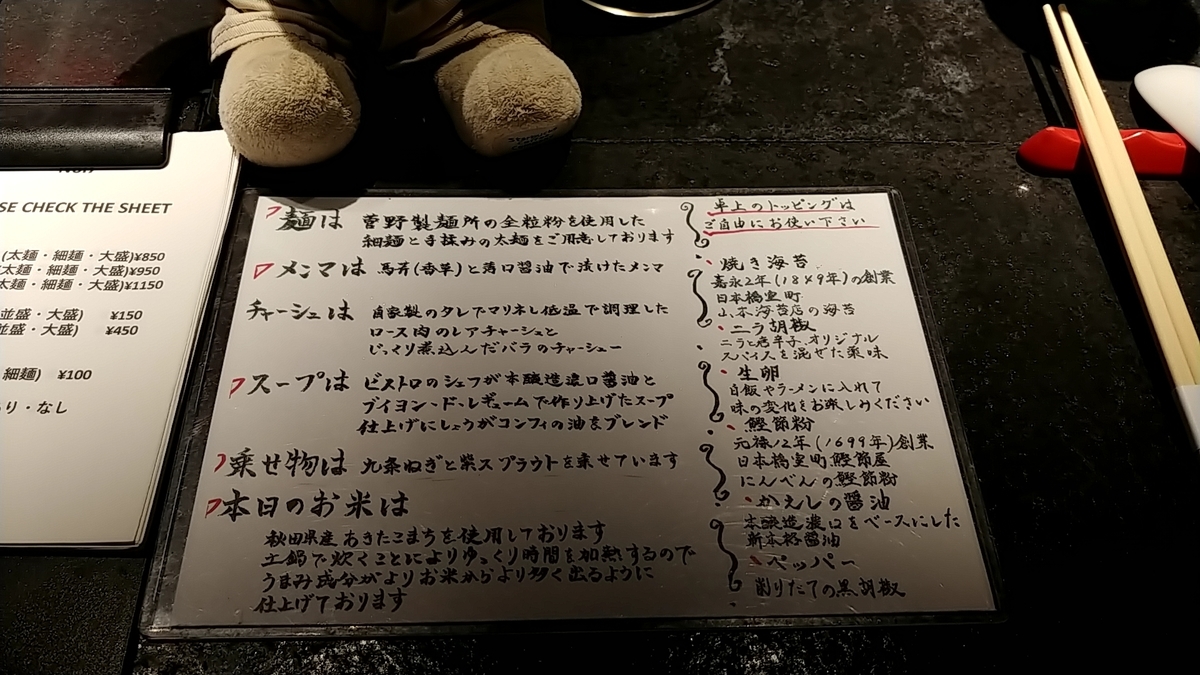 SE CHECK THE SHEET
(太麺・細麺・大盛)¥850
太麺・細麺・大盛)¥950
太麺・細麺・大盛)¥1150
並盛・大盛) ¥150
並盛・大盛) ¥450
細麺) ¥100
り・なし
麺は 菅野製麺所の全粒粉を使用した
細麺と手揉みの太麺をご用意しております
メンマは 馬芹(香草)と薄口醤油で漬けたメンマ
チャーシュは 自家製のタレでマリネし低温で調理した
ロース肉のレアチャーシュと
じっくり煮込んだバラのチャーシュー
スープは ビストロのシェフが本醸造濃口醤油と
ブイヨン・ド・レギュームで作り上げたスープ
仕上げにしょうがコンフィの油をブレンド
乗せ物は 九条ねぎと紫スプラウトを乗せています
本日のお米は
秋田県産 あきたこまちを使用しております
土鍋で炊くことによりゆっくり時間を加熱するので
うまみ成分がよりお米からより多く出るように
仕上げております
卓上のトッピングは
ご自由にお使い下さい
焼き海苔
嘉永2年(1849年)の創業
日本橋室町
山本海苔店の海苔
ニラ胡椒
ニラと唐辛子、オリジナル
スパイスを混ぜた薬味
生卵
白飯やラーメンに入れて
味の変化をお楽しみください
鰹節粉
元禄12年(1699年)創業
日本橋室町鰹節屋
にんべんの鰹節粉
かえしの醤油
本醸造濃口をベースにした
新本格醤油
ペッパー
削りたての黒胡椒